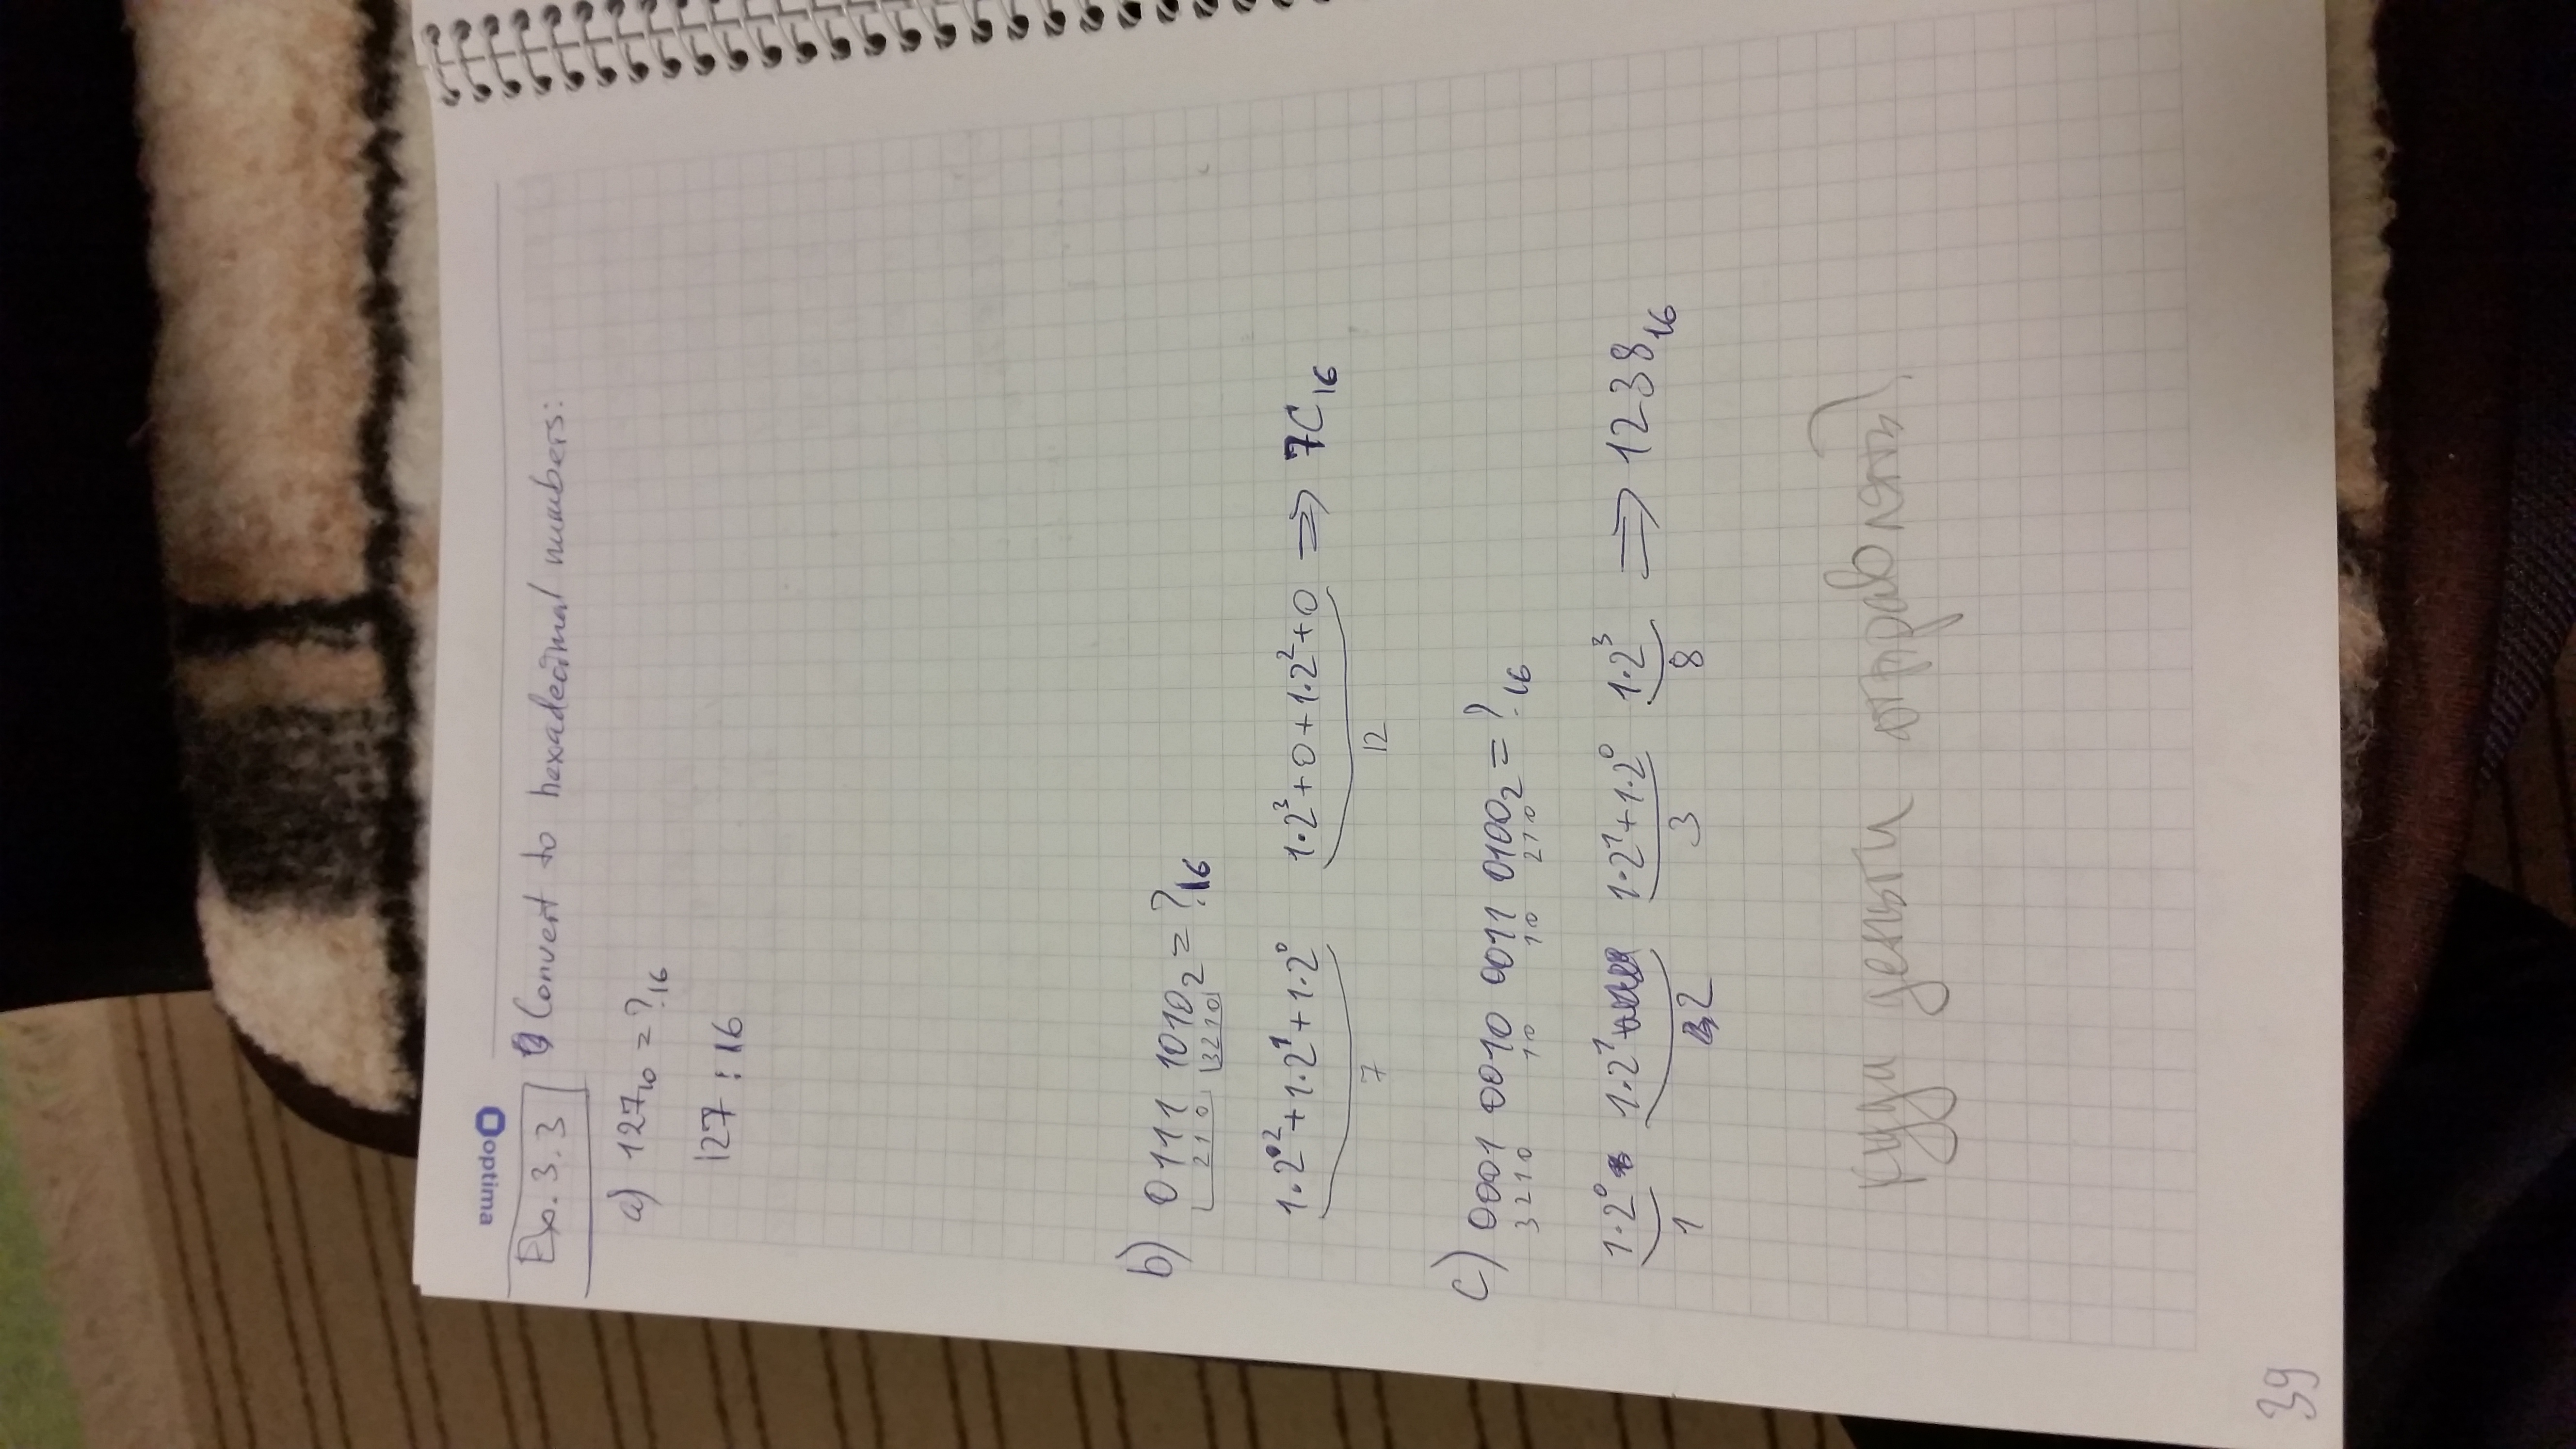 optima
Ex. 3.3 Convert to hexadecimal numbers:
a) 127₁₀ = ?₁₆
127 : 16
b) 0111 1010₂ = ?₁₆
2 1 0 3 2 1 0
1·2² + 1·2¹ + 1·2⁰ 1·2³ + 0 + 1·2² + 0 ⇒ 7C₁₆
7 12
c) 0001 0010 0011 0100₂ = ?₁₆
3 2 1 0 1 0 1 0 2 1 0
1·2⁰ 1·2¹ 1·2¹ + 1·2⁰ 1·2³ ⇒ 1238₁₆
1 2 3 8
куда деньги отправлять?
39